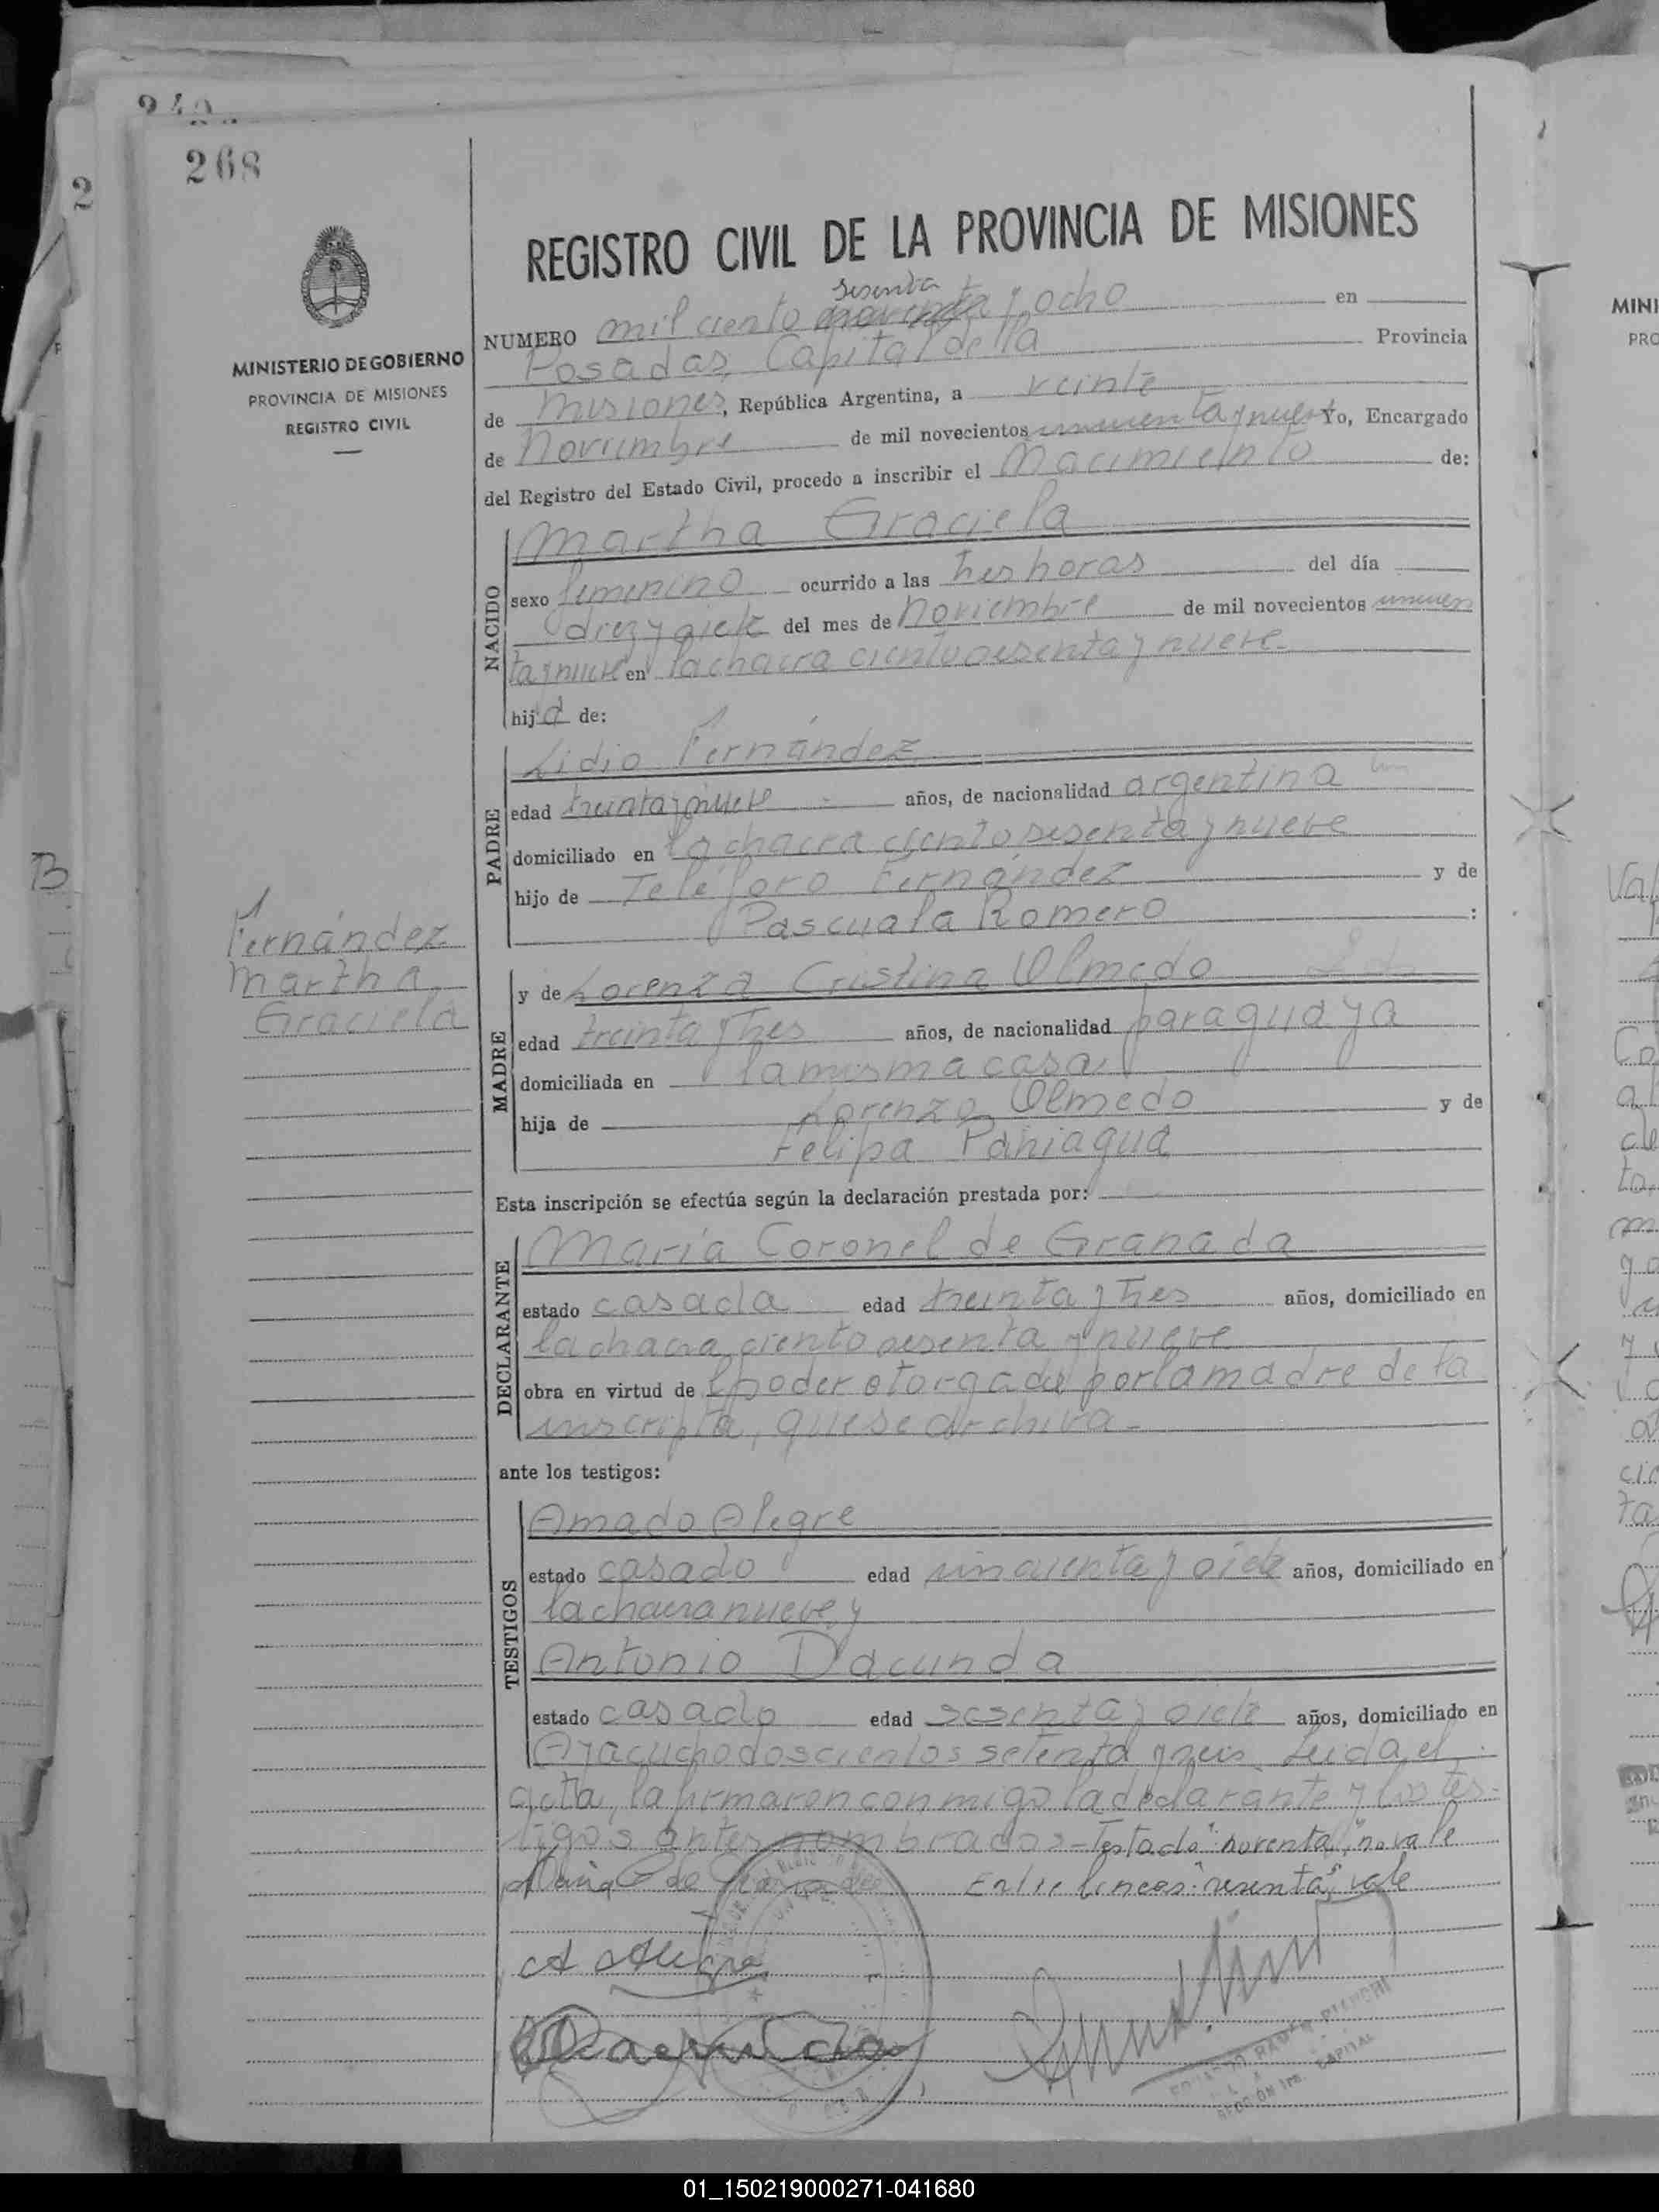 268
MINISTERIO DE GOBIERNO
PROVINCIA DE MISIONES
REGISTRO CIVIL
Fernández
Martha
Graciela
REGISTRO CIVIL DE LA PROVINCIA DE MISIONES
sesenta
NUMERO mil ciento noventa y ocho en
Posadas, Capital de la Provincia
de Misiones, República Argentina, a veinte
de Noviembre de mil novecientos cincuenta y nueve Yo, Encargado
del Registro del Estado Civil, procedo a inscribir el Nacimiento de:
NACIDO
Martha Graciela
sexo femenino ocurrido a las tres horas del día
diez y siete del mes de Noviembre de mil novecientos cincuen
ta y nueve en la chacra ciento sesenta y nueve.
hija de:
PADRE
Lidio Fernández
edad treinta y nueve años, de nacionalidad argentina
domiciliado en la chacra ciento sesenta y nueve
hijo de Teléforo Fernandez y de
Pascuala Romero :
MADRE
y de Lorenza Cristina Olmedo
edad treinta y tres años, de nacionalidad paraguaya
domiciliada en la misma casa
hija de Lorenzo Olmedo y de
Felipa Paniagua
Esta inscripción se efectúa según la declaración prestada por:
DECLARANTE
María Coronel de Granada
estado casada edad treinta y tres años, domiciliado en
la chacra ciento sesenta y nueve
obra en virtud de poder otorgado por la madre de la
inscripta, que se archiva.-
ante los testigos:
TESTIGOS
Amado Alegre
estado casado edad cincuenta y siete años, domiciliado en
la chacra nueve, y
Antonio Dacunda
estado casado edad sesenta y siete años, domiciliado en
Ayacucho doscientos setenta y seis. Leida el
acta, la firmaron conmigo la declarante y los tes-
tigos antes nombrados=Testado "noventa", no vale
Maria C de Granada Entre lineas: "sesenta", vale
A Alegre
EDUARDO RAMON BIANCHI
SECCIÓN 1ra. CAPITAL
01_150219000271-041680